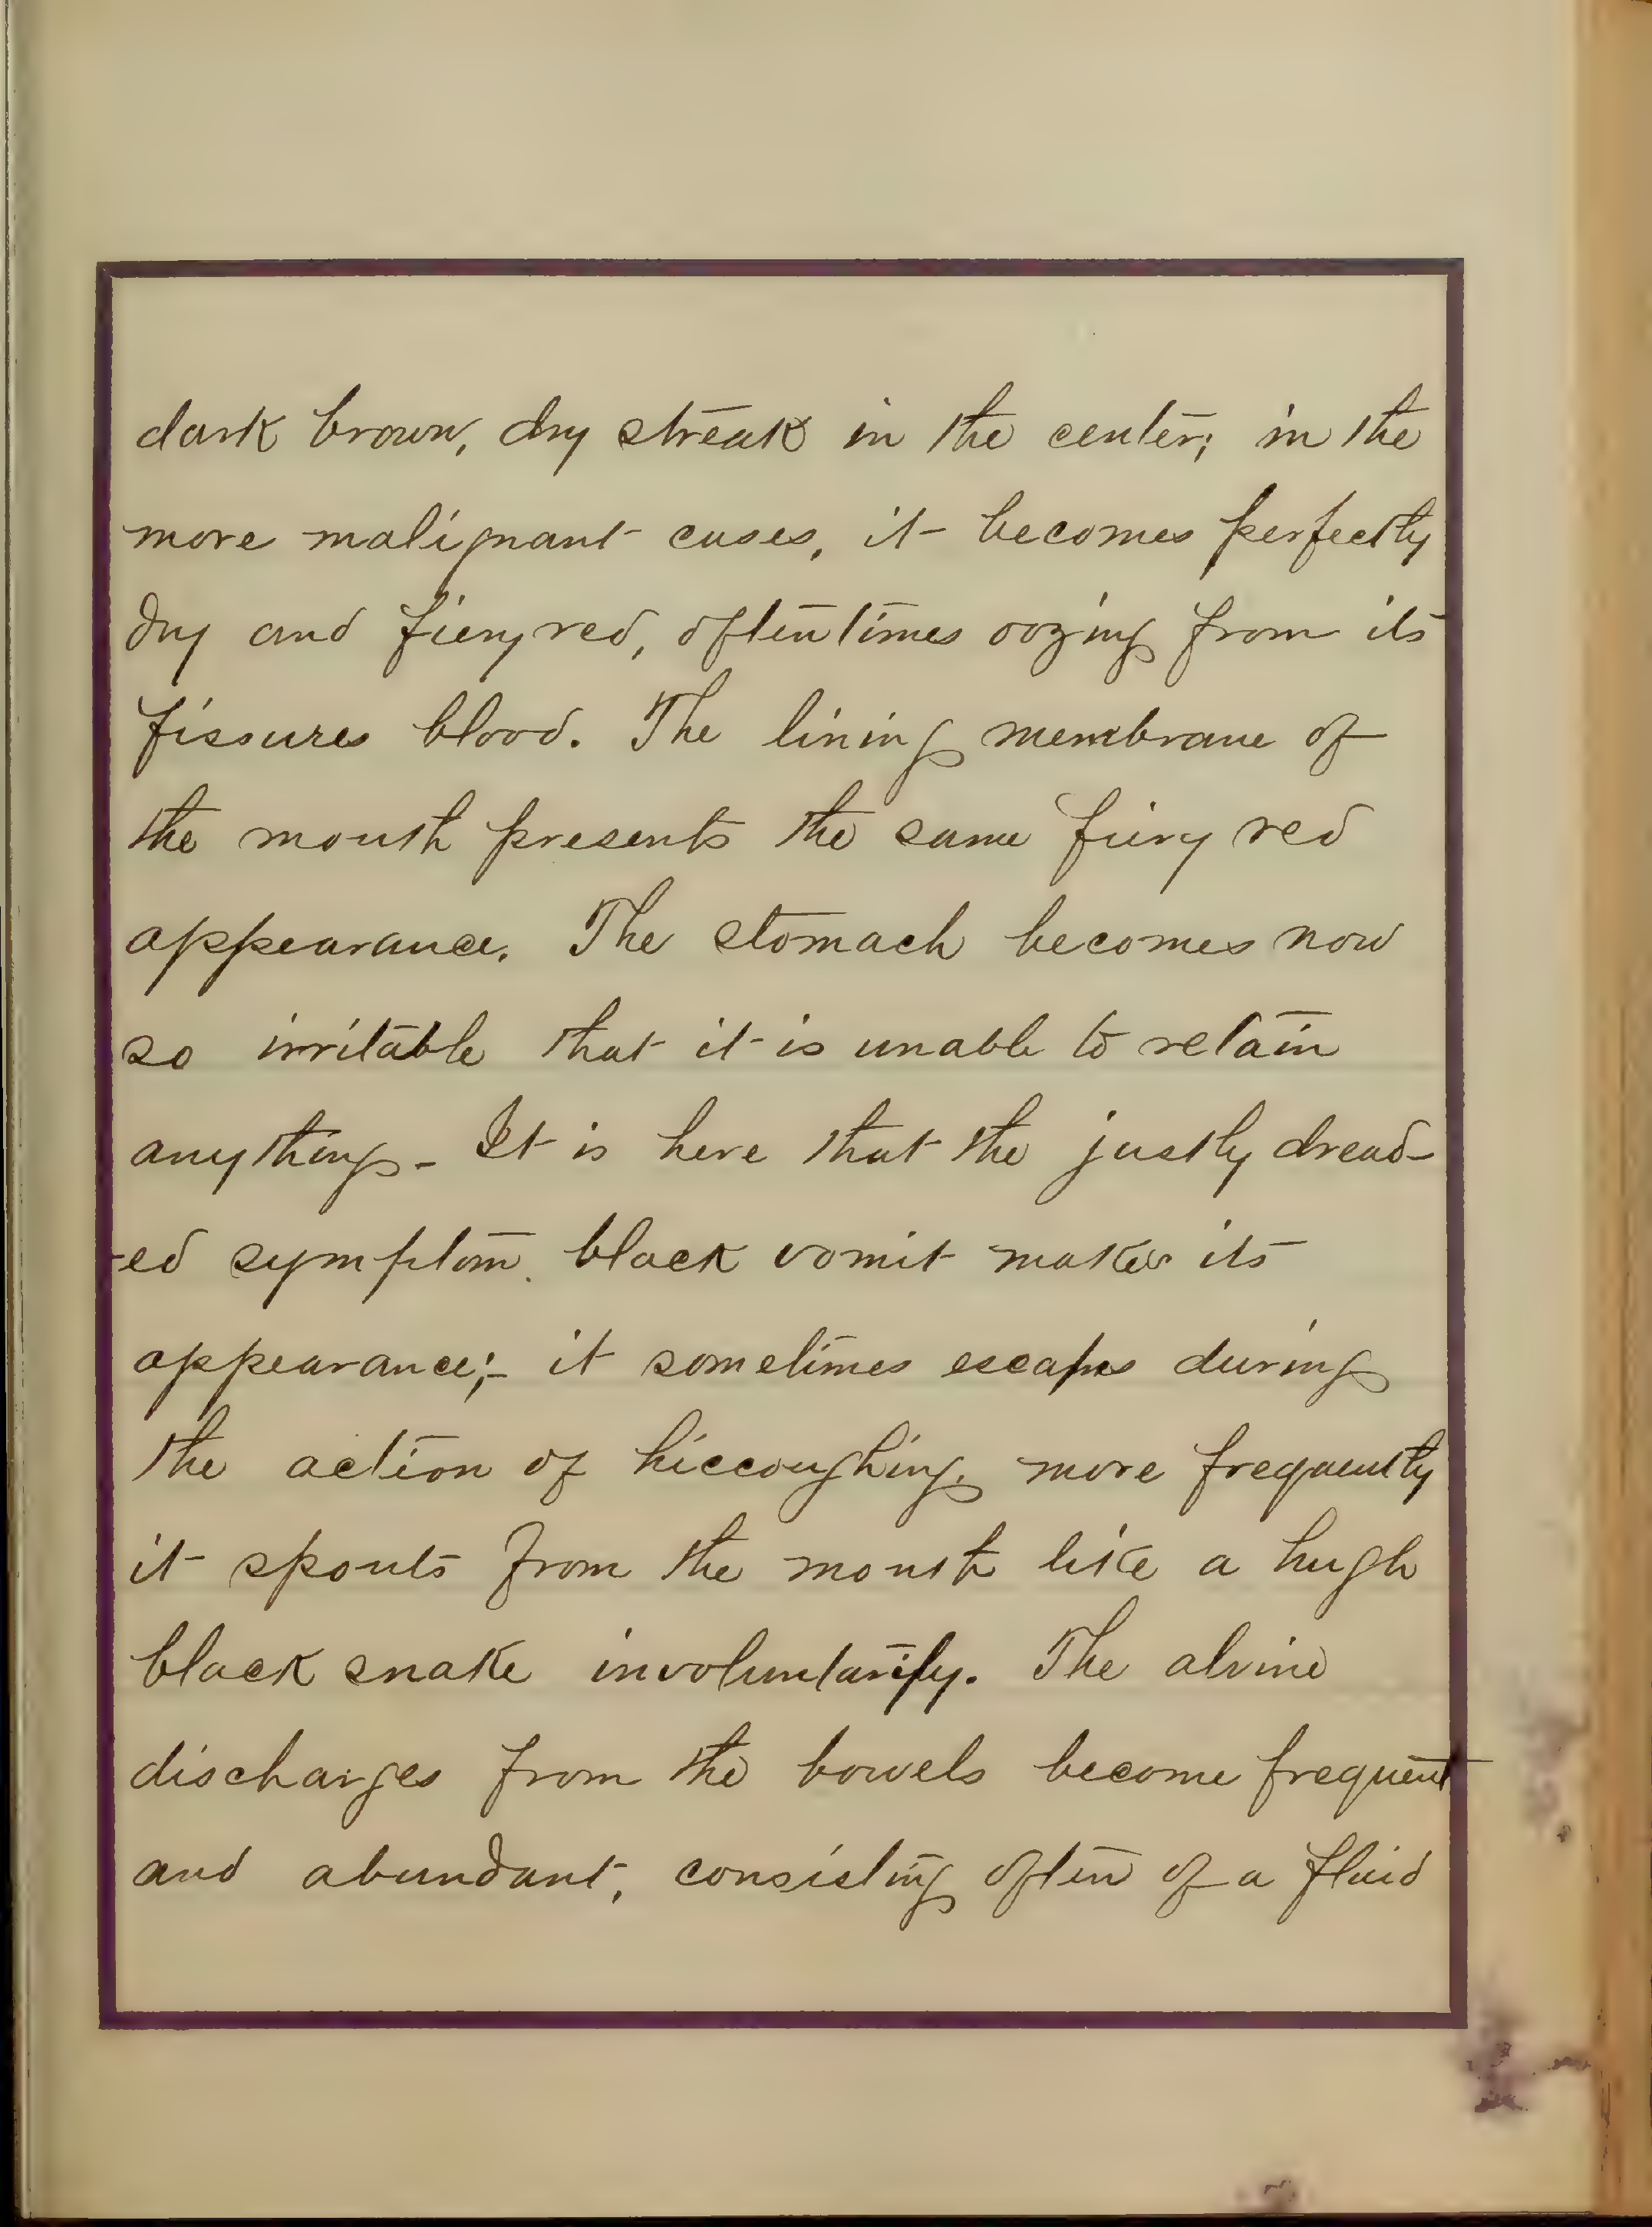 dark brown, dry streak in the center; in the
more malignant cases, it becomes perfectly
dry and fiery red, oftentimes oozing from its
fissures blood. The lining membrane of
the mouth presents the same fiery red
appearance. The stomach becomes now
so irritable that it is unable to retain
anything - It is here that the justly dread-
-ed symptom, black vomit makes its
appearance;- it sometimes escapes during
the action of hiccoughing, more frequently
it spouts from the mouth like a hugh
black snake involuntarily. The alvine
discharges from the bowels become frequent
and abundant, consisting often of a fluid